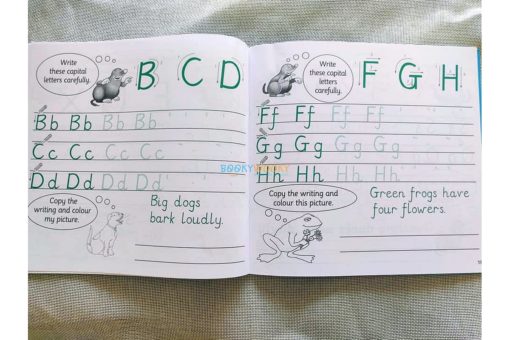 Write
these capital
letters carefully.
B C D
Bb Bb Bb Bb
Cc Cc Cc Cc
Dd Dd Dd Dd
Copy the
writing and colour
my picture.
Big dogs
bark loudly.
Write
these capital
letters
carefully.
F G H
Ff Ff Ff Ff
Gg Gg Gg Gg
Hh Hh Hh Hh
Copy the writing and
colour this picture.
Green frogs have
four flowers.